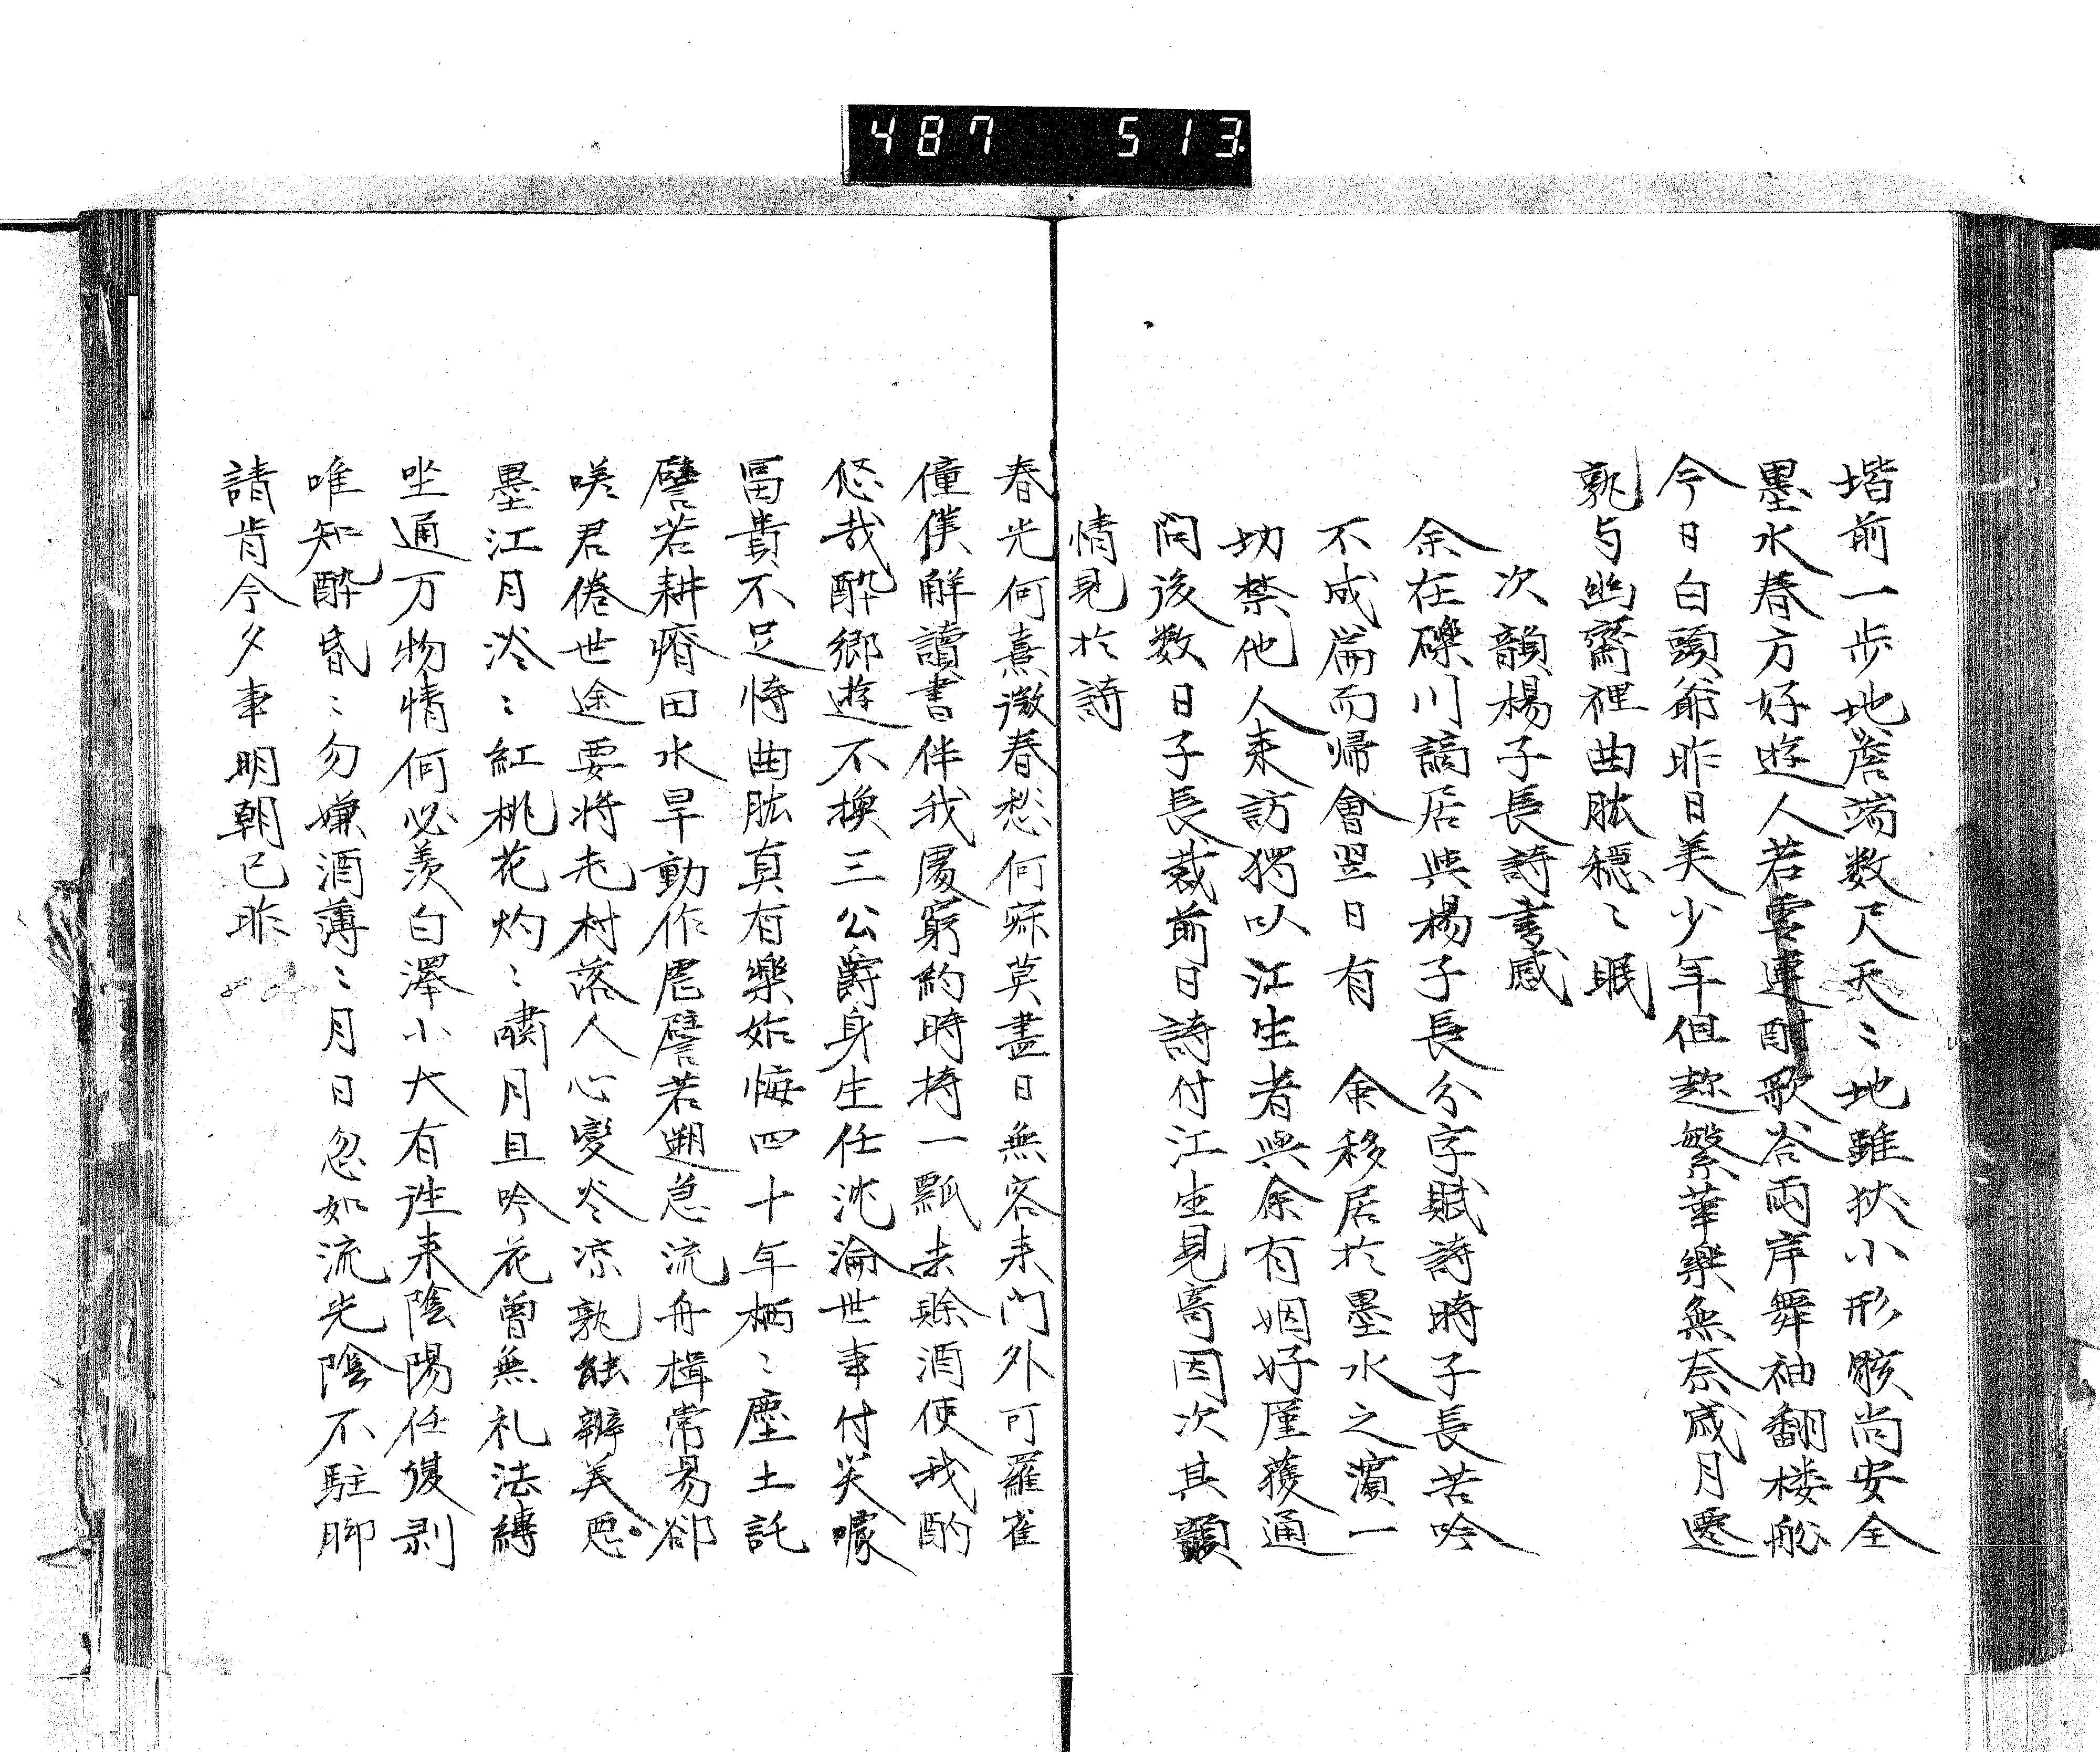 487 513
堦前一歩地簷端数尺天〻地雖狭小形骸尚安全
墨水春方好遊人若雲連酣歌答兩岸舞袖翻楼船
今日白頭爺昨日美少年但趂繁華樂無奈歳月遷
孰与幽齋裡曲肱穏〻眠
次韻楊子長詩書感
余在礫川謫居與楊子長分字賦詩時子長苦吟
不成篇而帰會翌日有 余移居於墨水之濵一
切禁他人来訪獨以江生者與余有姻好厪獲通
问後数日子長裁前日詩付江生見寄因次其韻
情見於詩
春光何熹微春愁何寂莫盡日無客来门外可羅雀
僮僕解讀書伴我處窮約時持一瓢去賖酒使我酌
悠哉酔郷遊不換三公爵身生任沈淪世事付笑噱
冨貴不足恃曲肱真有樂始悔四十年栖〻塵土託
譬若耕瘠田水旱動作虐譬若遡急流舟楫常易郤
嘆君倦世途要将老村落人心變炎凉孰能辨美悪
墨江月泠〻紅桃花灼〻嘯月且吟花曽無礼法縛
坐通万物情何必羨白澤小大有往来陰陽任復剥
唯知酔昏〻勿嫌酒薄〻月日忽如流光陰不駐脚
請肯今夕事明朝已昨